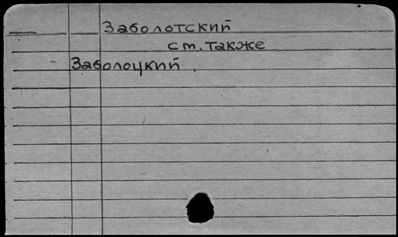 Заболотский
ст. также
Заболоцкий